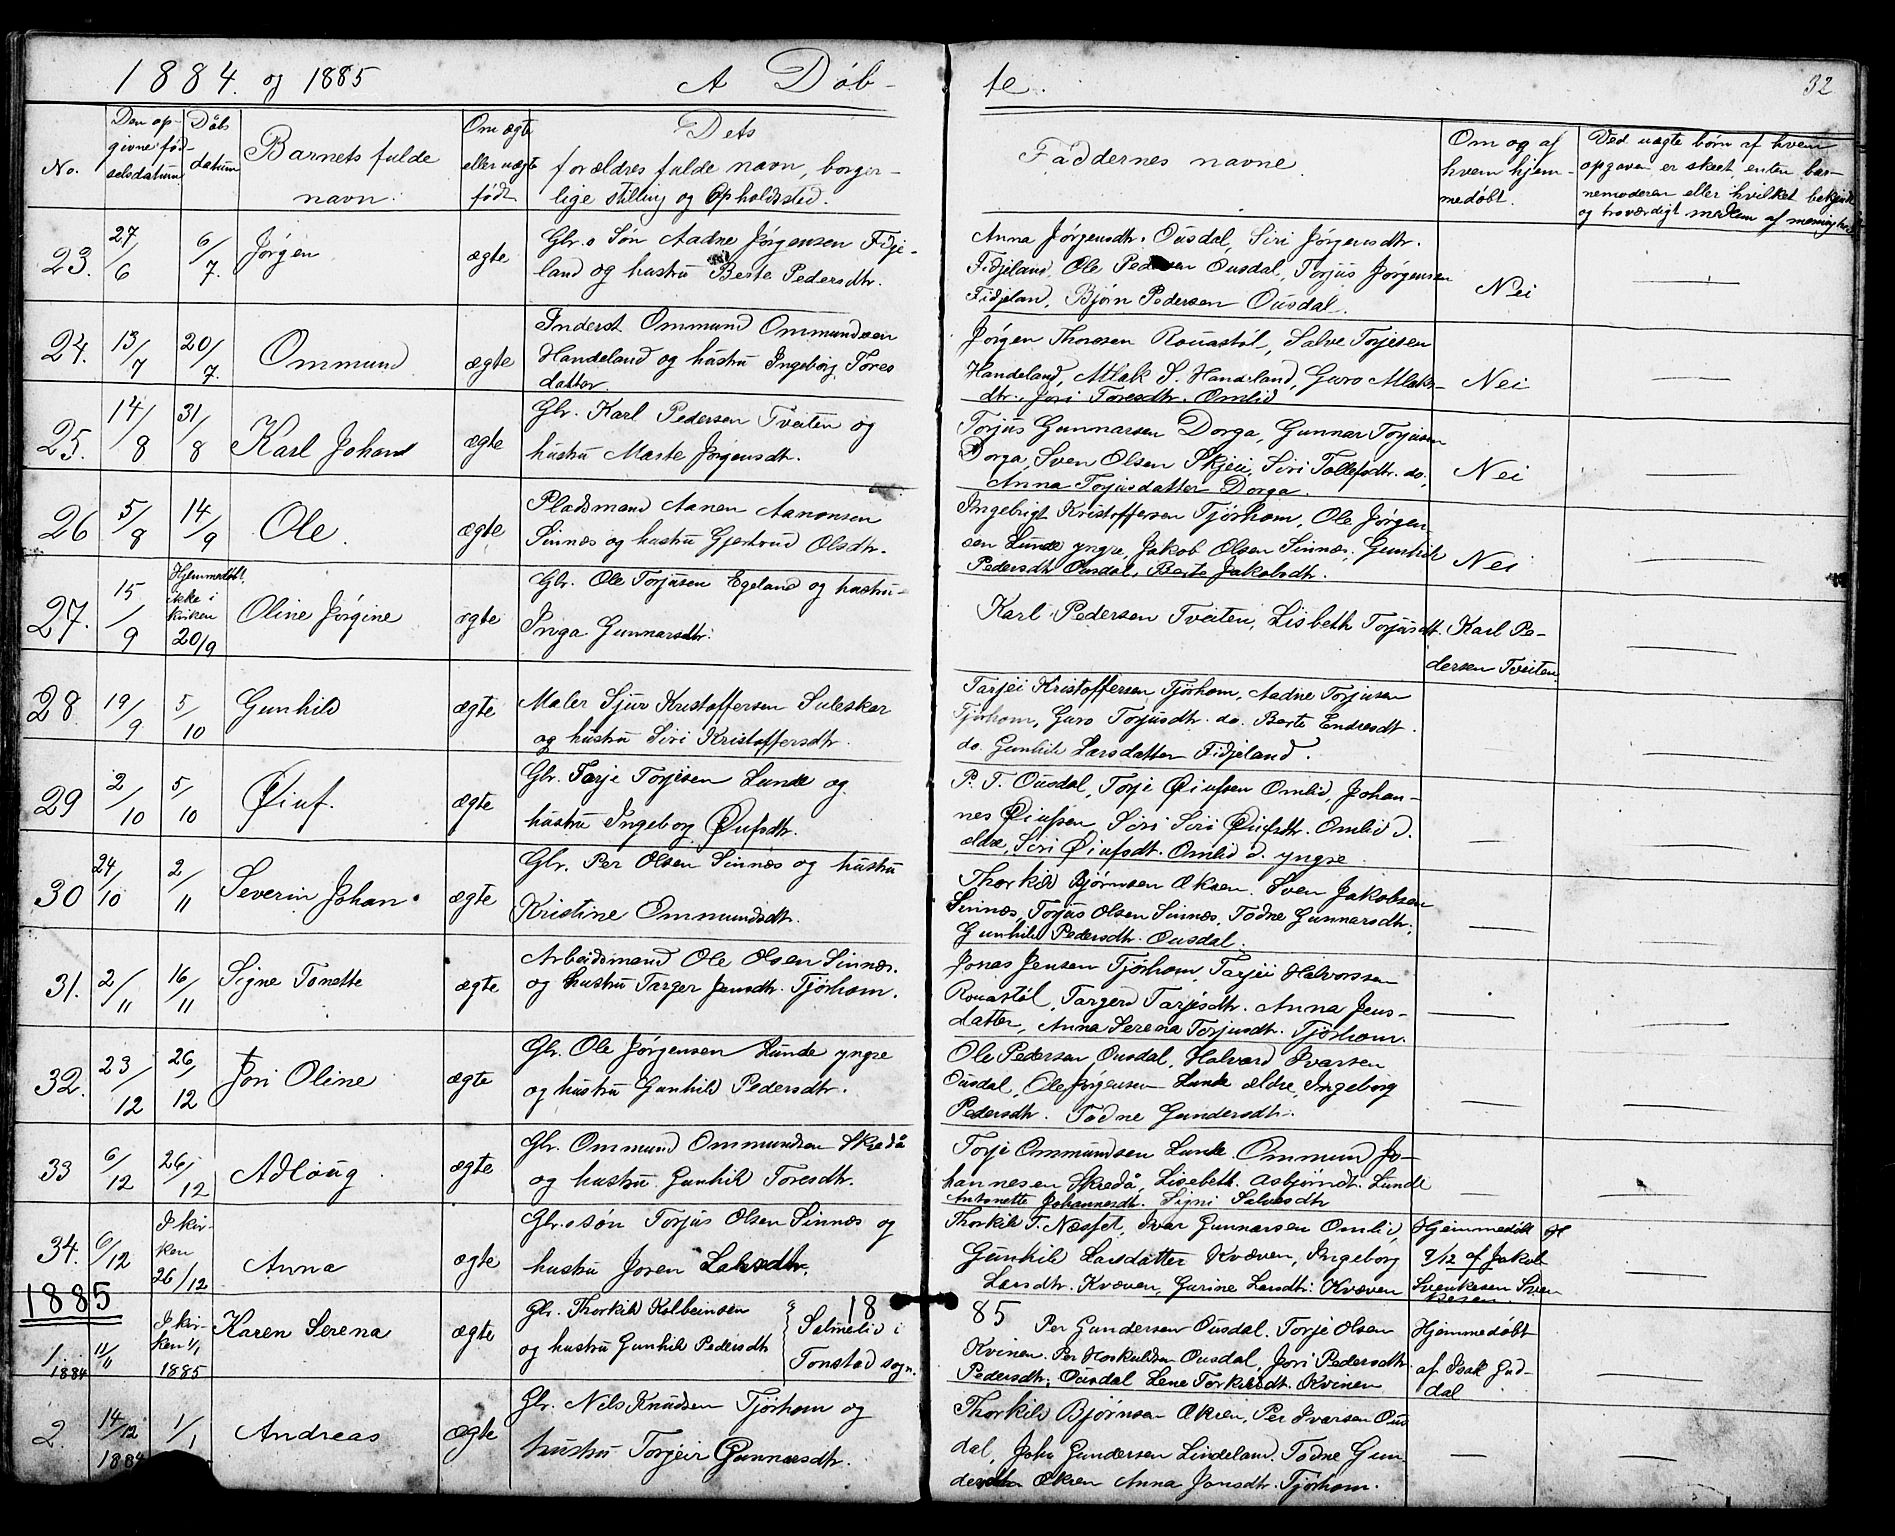 1884. og 1885 A Døb-
te. 32
No.
Den op-
givne fød-
selsdatum
Dåbs
datum
Barnets fulde
navn.
Om ægte
eller uægte
født
Dets
forældres fulde navn, borger-
lige stilling og opholdssted.
Faddernes navne.
Om og af
hvem hjem-
medøbt.
Ved uægte børn af hvem
opgaven er skeet, enten bar-
nemoderen eller hvilket bekjendt
og troværdigt medlem af menigheden
23. 27/6 6/7. Jørgen ægte
Gbr.s Søn Aadne Jørgensen Fidje-
land og hustru Berte Pedersdtr.
Anna Jørgensdtr. Ousdal, Siri Jørgensdtr.
Fidjeland, Ole Pedersen Ousdal, Torjus Jørgensen
Fidjeland, Bjørn Pedersen Ousdal.
Nei
24. 13/7 20/7. Ommund ægte
Inderst Ommund Ommundsen
Handeland og hustru Ingeborg Tores
datter
Jørgen Thorosen Rouastøl, Salve Torjesen
Handeland, Atlak S. Handeland, Guro Atlaks-
dtr., Jori Toresdtr. Omlid
Nei
25. 14/8 31/8 Karl Johan ægte
Gbr. Karl Pedersen Tveiten og
hustru Marte Jørgensdtr.
Torjus Gunnarsen Dorga, Gunnar Torjusen
Dorga, Sven Olsen Skjeii, Siri Tollefsdtr. do.,
Anna Torjusdatter Dorga.
Nei
26 5/8 14/9 Ole. ægte
Pladsmand Aanen Aanonsen
Sinnes og hustru Gjertrud Olsdtr.
Ingebrigt Kristoffersen Tjørhom, Ole Jørgen
sen Lunde yngre, Jakob Olsen Sinnes, Gunhild
Pedersdtr Ousdal, Berte Jakobsdtr.
Nei
27. 15/9
Hjemmedøbt,
ikke i
kirken
20/9
Oline Jørgine ægte
Gbr. Ole Torjusen Egeland og hustru
Inga Gunnarsdtr.
Karl Pedersen Tveiten, Lisbeth Torjusdt.
Karl Pe-
dersen Tveiten
28 19/9 5/10 Gunhild ægte
Maler Sjur Kristoffersen Suleskar
og hustru Siri Kristoffersdtr.
Tarjei Kristoffersen Tjørhom, Aadne Torjusen
Tjørhom, Guro Torjusdtr. do. Berte Endresdt.
do. Gunhild Larsdatter Fidjeland.
29 2/10 5/10 Øiuf. ægte
Gbr. Tarje Torjesen Lunde og
hustru Ingeborg Øiufsdtr.
P. T. Ousdal, Torje Øiufsen Omlid, Johan-
nes Øiufsen, Siri Siri Øiufsdtr. Omlid d.
eldre, Siri Øiufsdt. Omlid d. yngre.
30 24/10 2/11 Severin Johan. ægte
Gbr. Per Olsen Sinnes og hustru
Kristine Ommundsdtr.
Thorkild Bjørnsen Øksen. Sven Jakobsen
Sinnes, Torjus Olsen Sinnes, Todne Gunnarsdtr.
Gunhild Pedersdtr. Ousdal.
31. 2/11 16/11 Signe Tonette ægte
Arbeidsmand Ole Olsen Sinnes.
og hustru Targer Jensdtr. Tjørhom.
Jonas Jensen Tjørhom, Tarjei Halvorssen
Rouastøl, Targerd Tarjeisdtr. Anna Jens-
datter, Anna Serena Torjusdtr. Tjørhom.
32. 23/12 26/12 Jori Oline ægte
Gbr. Ole Jørgensen Lunde yngre
og hustru Gunhild Pedersdtr.
Ole Pedersen Ousdal, Halvard Ivarsen
Ousdal, Ole Jørgensen Lunde ældre, Ingeborg
Pedersdtr. Todne Gundersdtr.
33 6/12 26/12 Adloug. ægte
Gbr. Ommund Ommundsen Skredå
og hustru. Gunhild Toresdtr.
Torje Ommundsen Lunde. Ommund Jo-
hannesen Skredå, Lisebeth Asbjørndt. Lunde
Antonette Johannesdt. Signi Salvesdtr
34. 6/12
I kir-
ken
26/12
Anna ægte
Gbr.s søn Torjus Olsen Sinnes og
hustru Joren Larsdtr.
Thorkild T. Næsset, Ivar Gunnarsen Omlid,
Gunhild Larsdatter Kvæven, Ingeborg
Larsdtr. Kvæven, Gurine Larsdtr. Kvæven
Hjemmedøbt
9/12 af Jakob
Svenkesen Sven
kesen
1885
18
85
1 11/11 1884
I kir-
ken 1/1
1885
Karen Serena ægte
Gbr. Thorkild Kolbeinsen
og hustru Gunhild Pedersdt
Salmelid i
Tonstad sogn.
Per Gundersen Ousdal. Torje Olsen
Kvinen. Per Hoskuldsen Ousdal, Jori Pedersdtr.
Pedersdtr. Ousdal Lene Torkildsdt. Kvinen
Hjemmedøbt
af Isak Gud-
dal
2. 14/12 1884 1/1 Andreas ægte
Gbr. Nels Knudsen Tjørhom og
hustru Torjeir Gunnarsdtr.
Thorkild Bjørnsen Øksen, Per Ivarsen Ous
dal, John Gundersen Lindeland. Todne Gun
Øksen Anna Jonsdtr. Tjørhom.